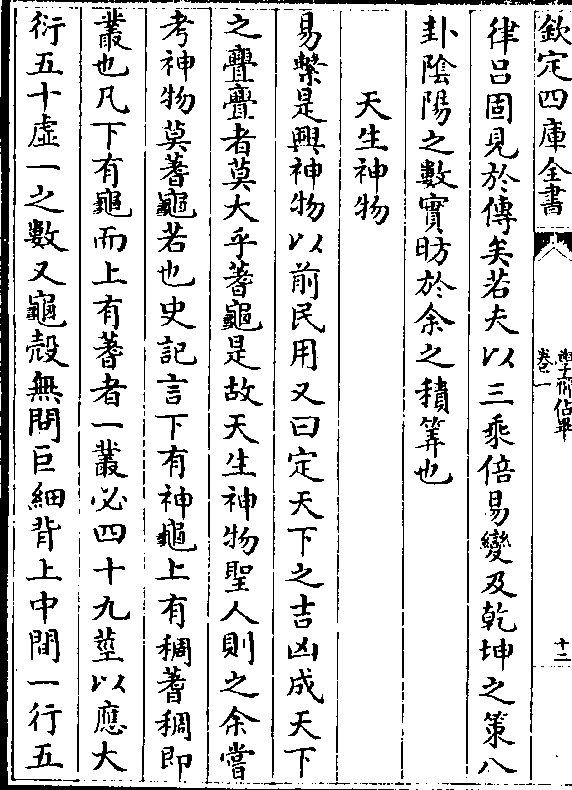 欽定四庫全書
卷一
十二
律吕固見於傳矣若夫以三乘倍易變及乾坤之策八
卦陰陽之數實昉於余之積筭也
天生神物
易繫是興神物以前民用又曰定天下之吉凶成天下
之亹亹者莫大乎蓍龜是故天生神物聖人則之余嘗
考神物莫蓍龜若也史記言下有神龜上有稠蓍稠即
叢也凡下有龜而上有蓍者一叢必四十九莖以應大
衍五十虚一之數又龜殻無問巨細背上中間一行五